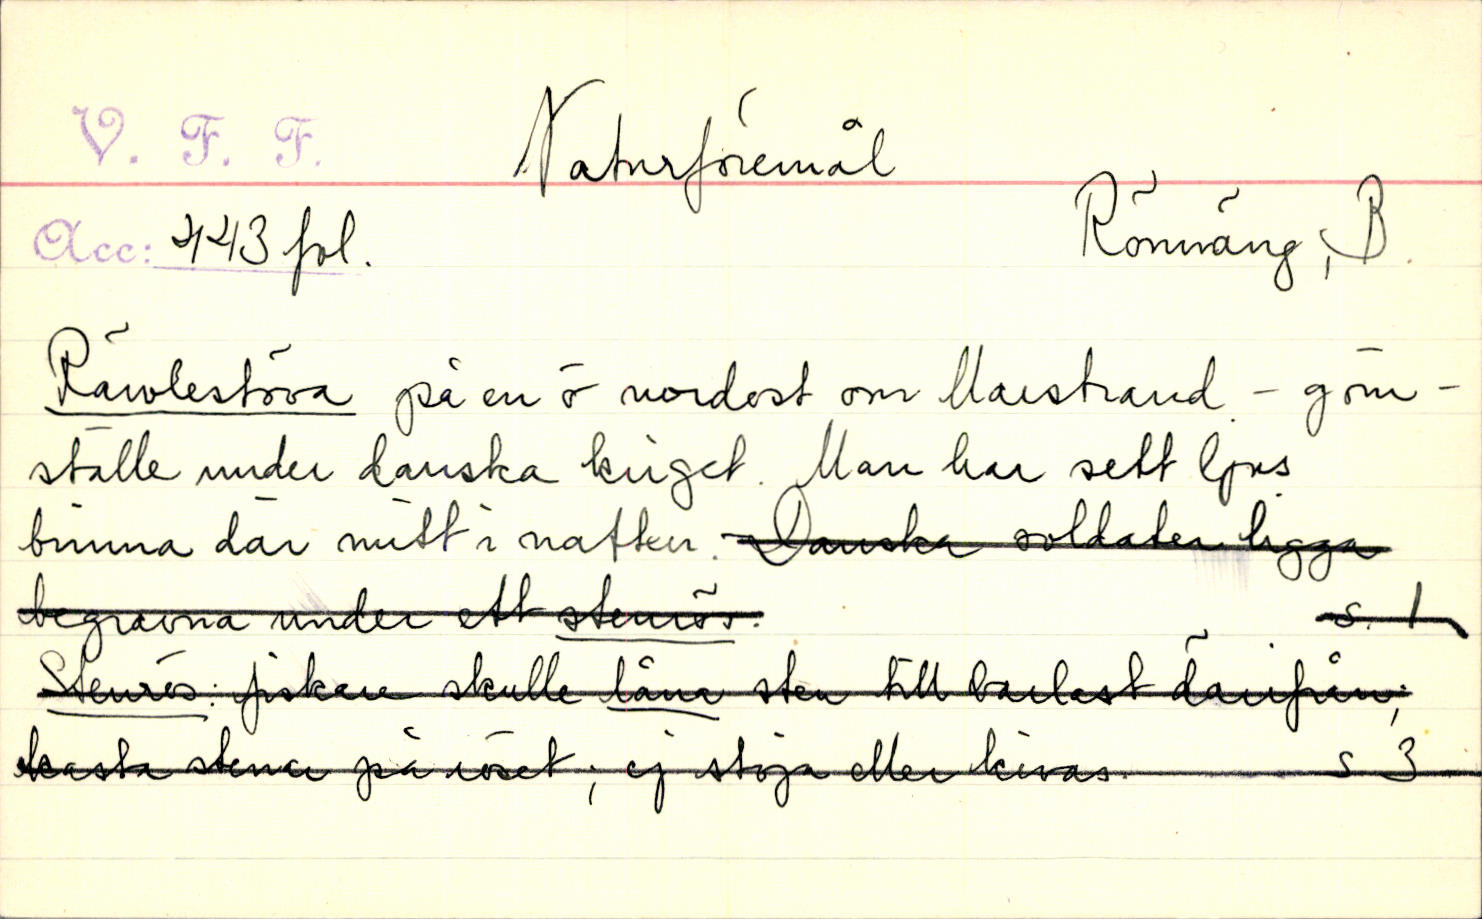 V. F. F.
Naturföremål
Acc: 443 fol.
Rönnäng, B.
Rävlestöva på en ö nordost om Marstrand - göm-
ställe under danska kriget. Man har sett ljus
brinna där mitt i natten. Danska soldater ligga
begravna under ett stenrös. s. 1
Stenrös: fiskare skulle låna sten till barlast därifrån;
kasta stenar på röset; ej stöja eller kivas. s 3